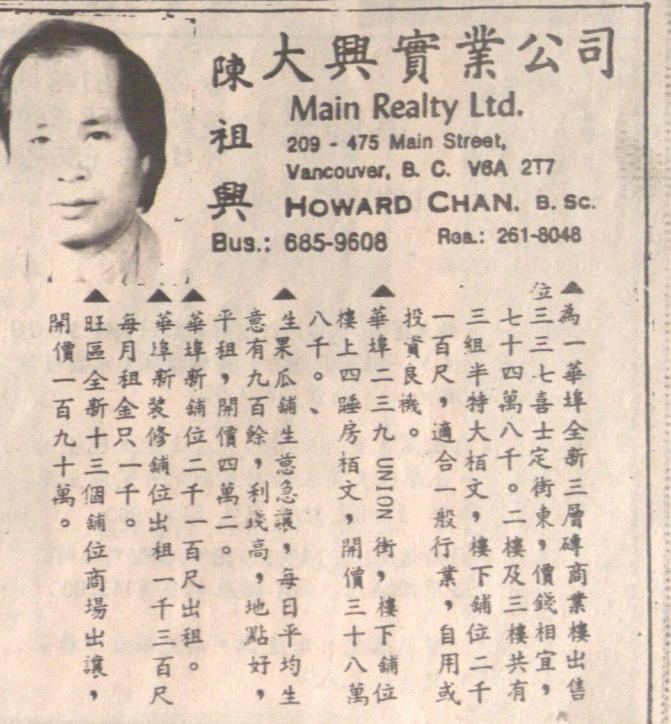 大興實業公司
陳祖興
Main Realty Ltd.
209 - 475 Main Street,
Vancouver, B. C. V6A 2T7
HOWARD CHAN. B. Sc.
Bus.: 685-9608 Res.: 261-8048
▲為一華埠全新三層磚商業樓出售
位三三七喜士定街東，價錢相宜，
七十四萬八千。二樓及三樓共有
三組半特大栢文，樓下鋪位二千
一百尺，適合一般行業，自用或
投資良機。
▲華埠二三九 UNION 街，樓下鋪位
樓上四睡房栢文，開價三十八萬
八千。、
▲生果瓜鋪生意急讓，每日平均生
意有九百餘，利錢高，地點好，
平租，開價四萬二。
▲華埠新鋪位二千一百尺出租。
▲華埠新裝修鋪位出租一千三百尺
每月租金只一千。
▲旺區全新十三個鋪位商場出讓，
開價一百九十萬。